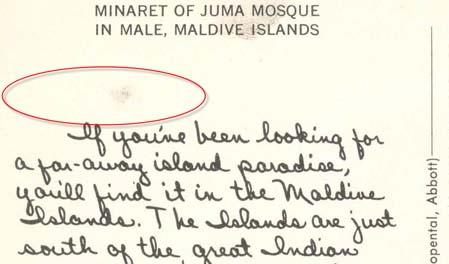 MINARET OF JUMA MOSQUE
IN MALE, MALDIVE ISLANDS
If you've been looking for
a far-away island paradise,
you'll find it in the Maldive
Islands. The Islands are just
south of the great Indian
opental, Abbott)